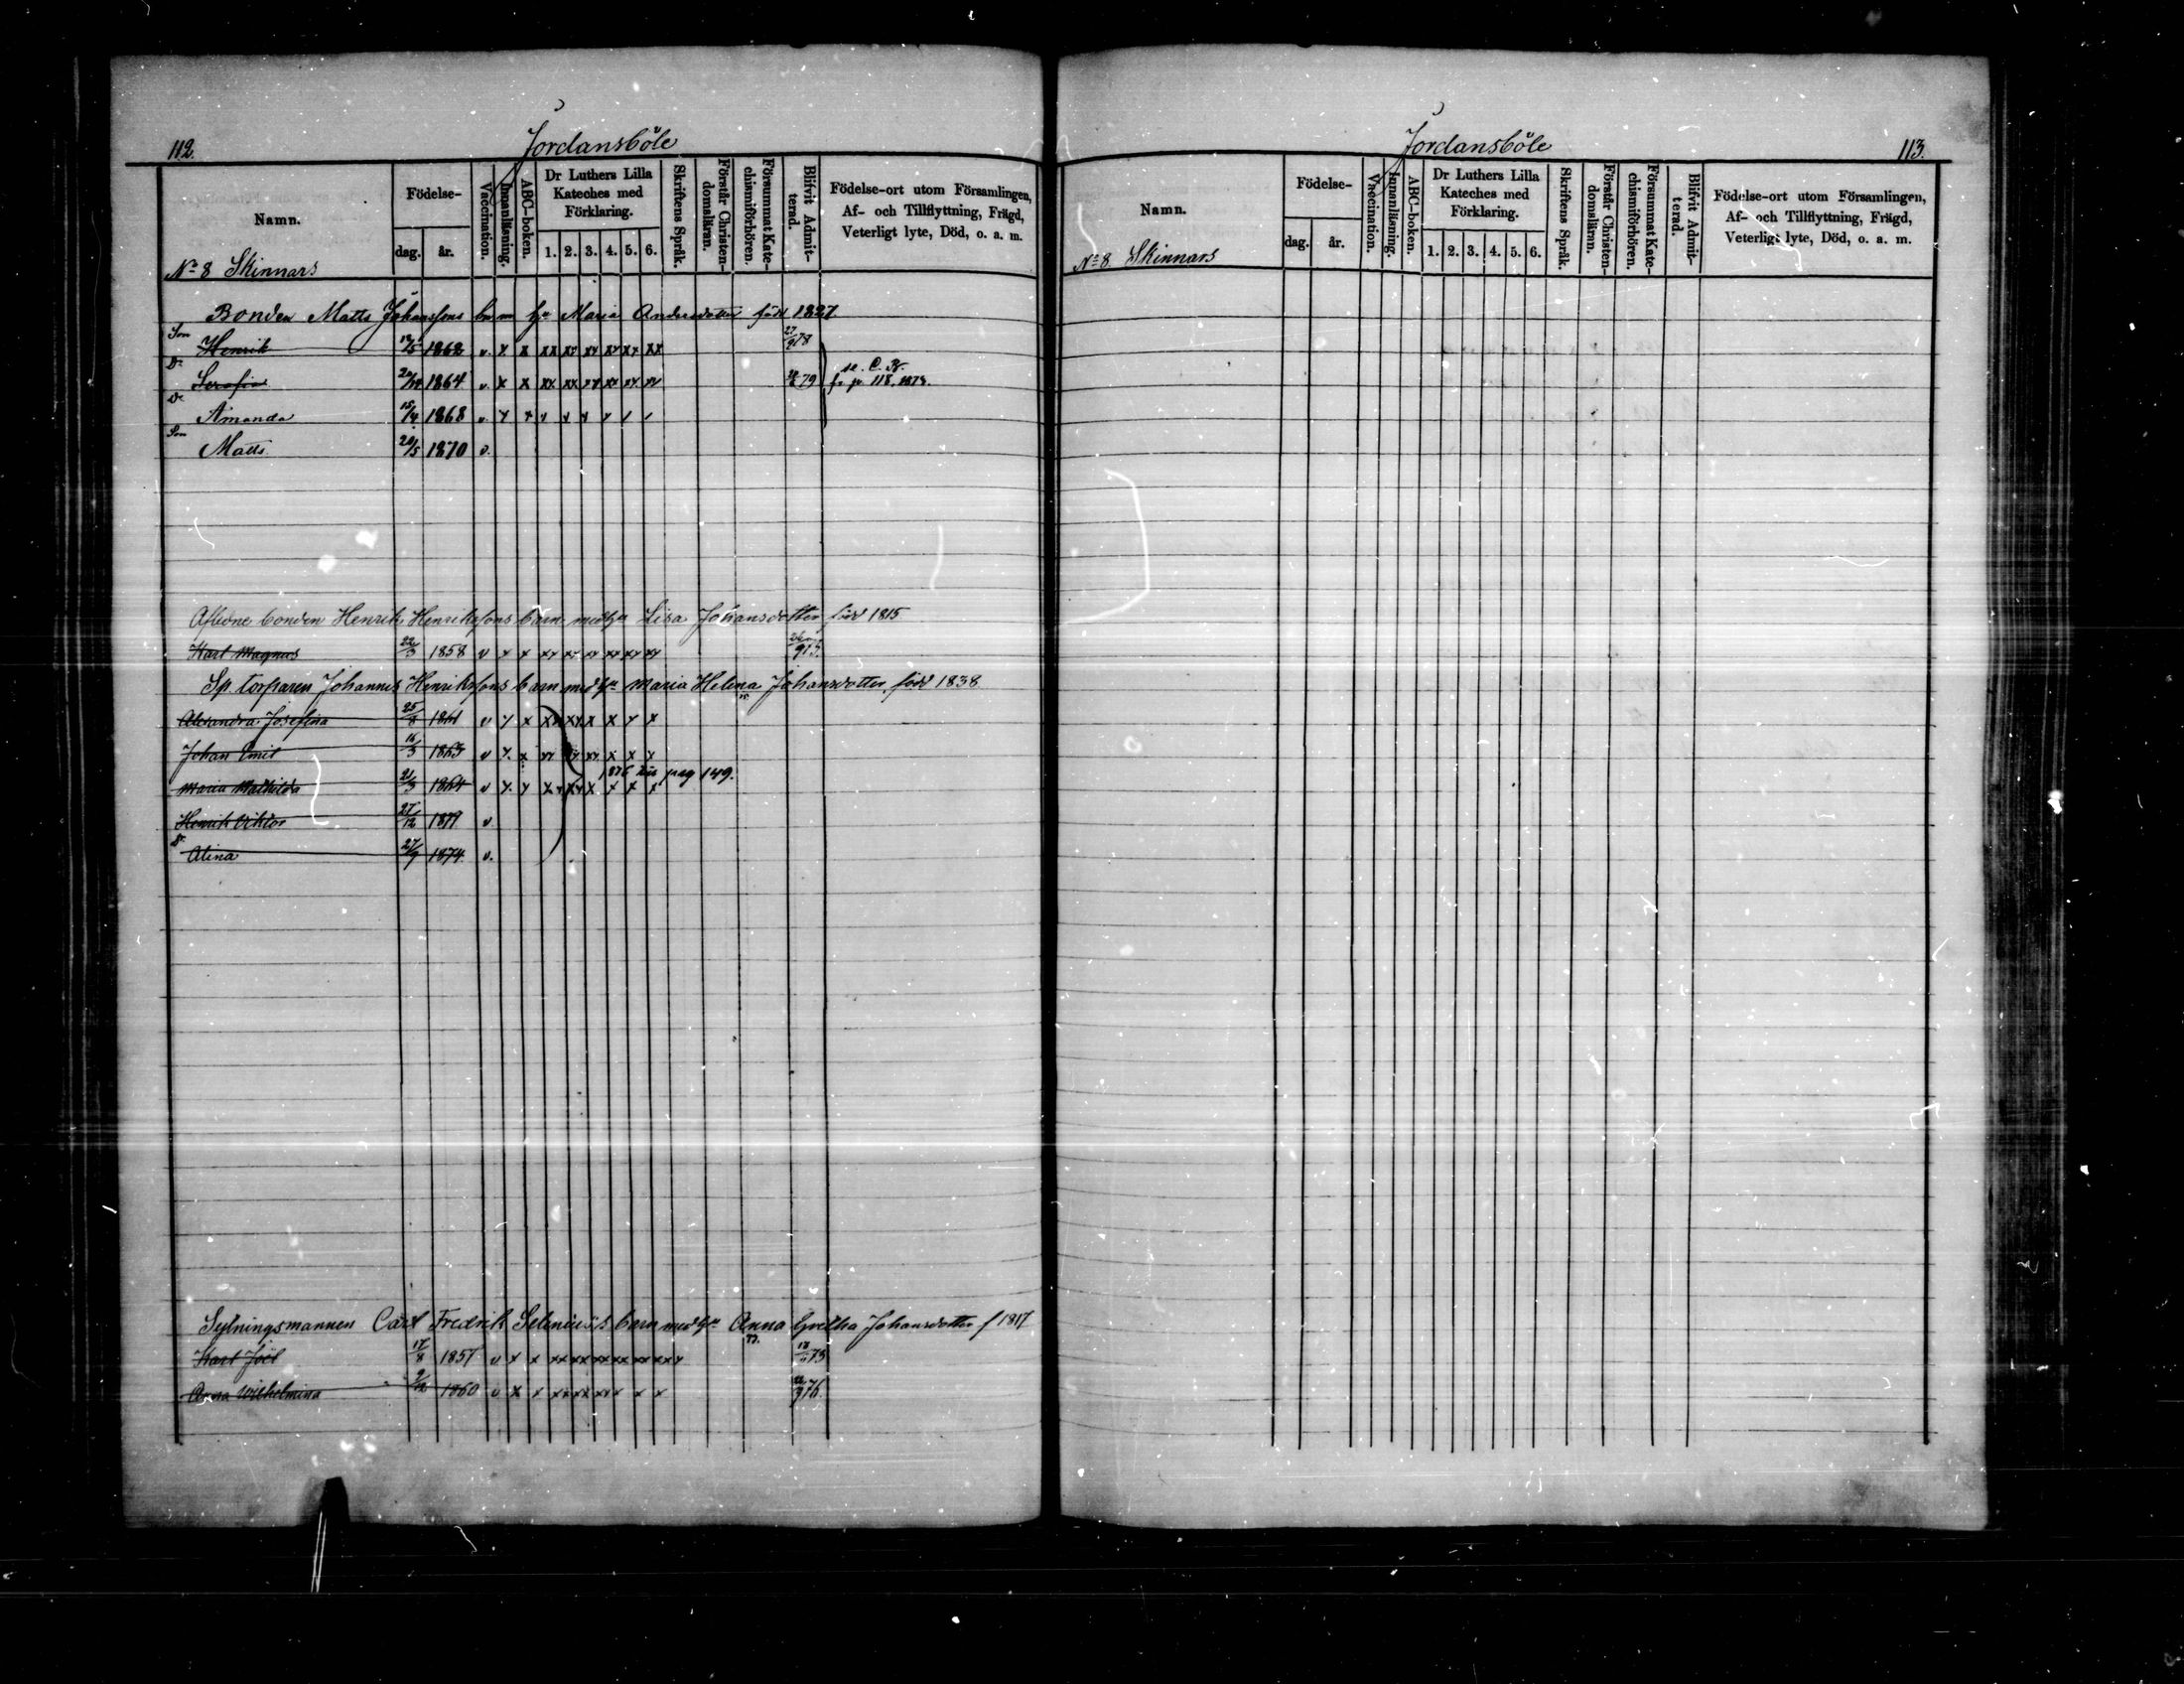 112.
Jordansböle
Namn.
Födelse-
dag.
år.
Vaccination.
Innanläsning.
ABC-boken.
Dr Luthers Lilla Kateches med Förklaring.
1. 2. 3. 4. 5. 6.
Skriftens Språk.
Förstår Christen-
domsläran.
Försummat Kate-
chismiförhören.
Blifvit Admit-
terad.
Födelse-ort utom Församlingen,
Af- och Tillflyttning, Frägd,
Veterligt lyte, Död, o. a. m.
No 8 Skinnars
Bonden Matts Johanssons barn hu Maria Andersdotter född 1827
Son
Henrik 1862 v. x x xx xx xx xx xx xx 27/9 78
Dr
Serafia 1864 v. x x xx xx xx xx xx xx 79 se C. B.
fr. p. 118. 1873.
Dr
Amanda 15/4 1868 v. x x x x x x / /
Son
Matts 20/5 1870 v.
Aflidne bonden Henrik Henrikssons barn med hu Lisa Johansdotter född 1815
Karl Magnus 22/3 1858 v x x xx xx xx xx xx xx
Sp torparen Johannes Henrikssons barn med hu Maria Helena Johansdotter född 1838
Alexandra Josefina 25/8 1861 v x x xx xx x x x x
Johan Emil 16/3 1863 v x. x xx xx xx x x x
1876 till pag 149.
Maria Mathilda 21/3 1864 v x x xx xx x x x x
Henrik Viktor 27/12 v
Dr
Alina 27/9 1874 v.
Sytningsmannen Carl Fredrik Selenius's barn med hu Anna Gretha Johansdotter f 1817
Karl Joel 17/8 1857 v x x xx xx xx xx xx xx 73
Anna Wilhelmina 9/12 1860 v x x xx xx xx x x x 76.
Jordansböle
113.
Namn.
Födelse-
dag.
år.
Vaccination.
Innanläsning.
ABC-boken.
Dr Luthers Lilla Kateches med Förklaring.
1. 2. 3. 4. 5. 6.
Skriftens Språk.
Förstår Christen-
domsläran.
Försummat Kate-
chismiförhören.
Blifvit Admit-
terad.
Födelse-ort utom Församlingen,
Af- och Tillflyttning, Frägd,
Veterligt lyte, Död, o. a. m.
No 8. Skinnars